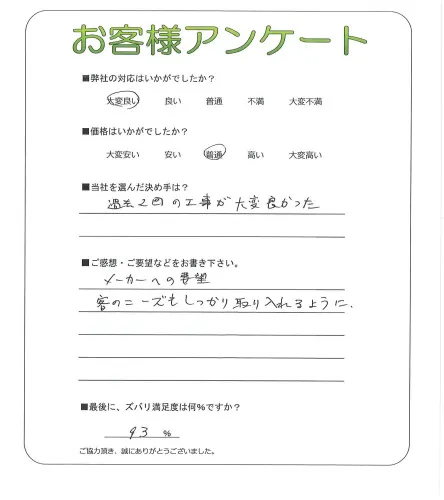 お客様アンケート
■弊社の対応はいかがでしたか？
大変良い 良い 普通 不満 大変不満
■価格はいかがでしたか？
大変安い 安い 普通 高い 大変高い
■当社を選んだ決め手は？
過去2回の工事が大変良かった
■ご感想・ご要望などをお書き下さい。
メーカーへの要望
客のニーズもしっかり取り入れるように.
■最後に、ズバリ満足度は何％ですか？
93 %
ご協力頂き、誠にありがとうございました。